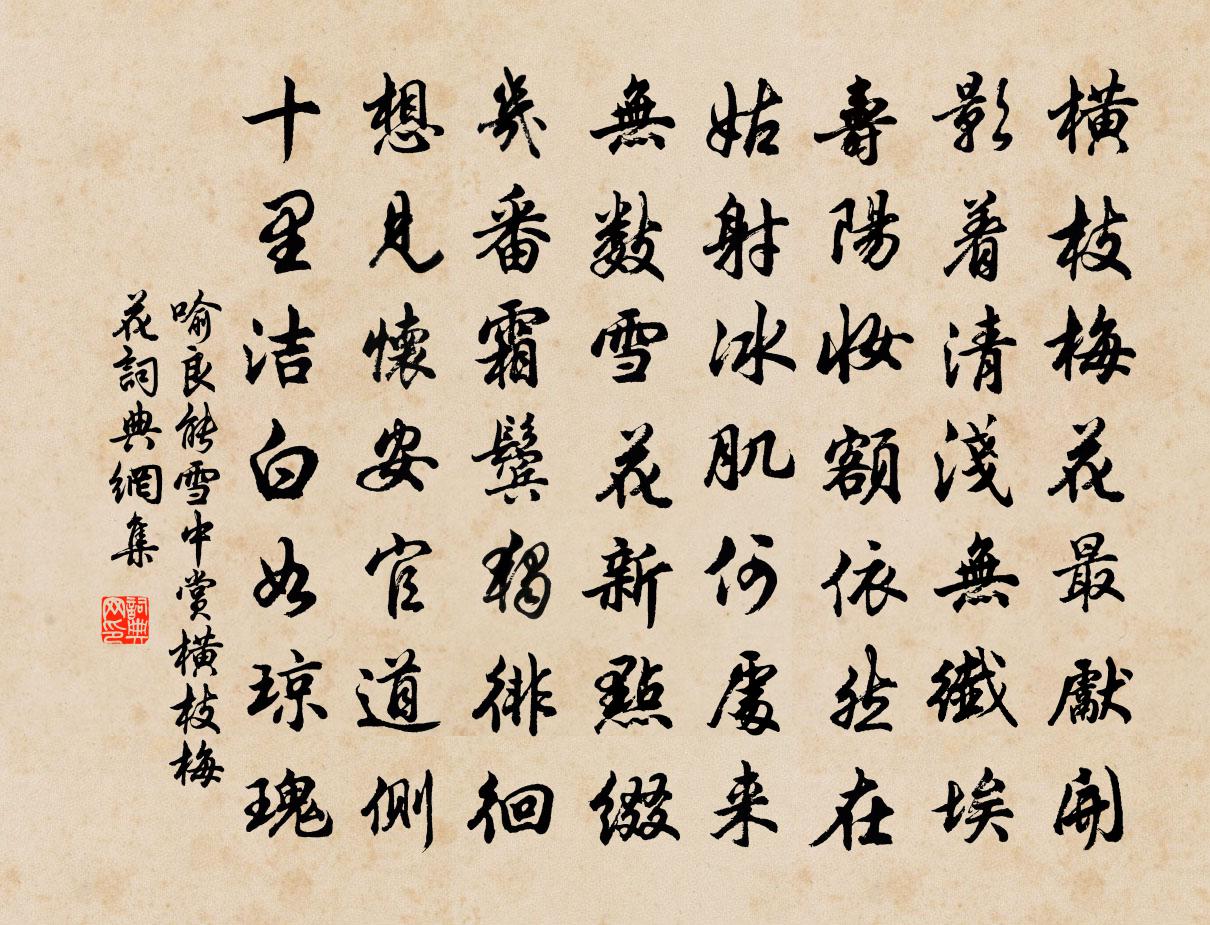 橫枝梅花最獻開
影着清淺無纖埃
壽陽妝額依然在
姑射冰肌何處来
無數雪花新點綴
幾番霜鬓獨徘徊
想見懷安官道側
十里洁白如琼瑰
喻良能雪中赏橫枝梅
花詞典網集
詞典网印